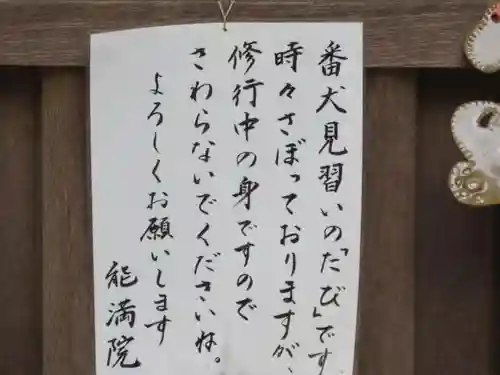 番犬見習いの「たび」です
時々さぼっておりますが、
修行中の身ですので
さわらないでくださいね。
よろしくお願いします
能満院